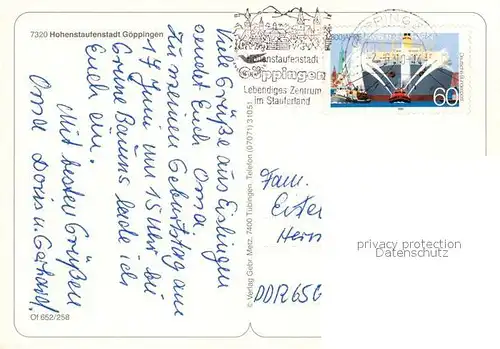 7320 Hohenstaufenstadt Göppingen
Viele Grüße aus Eislingen
sendet Euch Oma
Zu meinen Geburtstag am
17 Juni um 15 Uhr bei
Grüne Baums lade ich
Euch ein.
Mit besten Grüßen
Oma Doris u. Gerhard!
Of 652/258
© Verlag Gebr. Metz, 7400 Tübingen, Telefon (07071) 31051
Hohenstaufenstadt
Göppingen
Lebendiges Zentrum
im Stauferland
GÖPPINGEN
800 JAHRE
60
Fam.
DDR 656
privacy protection
Datenschutz